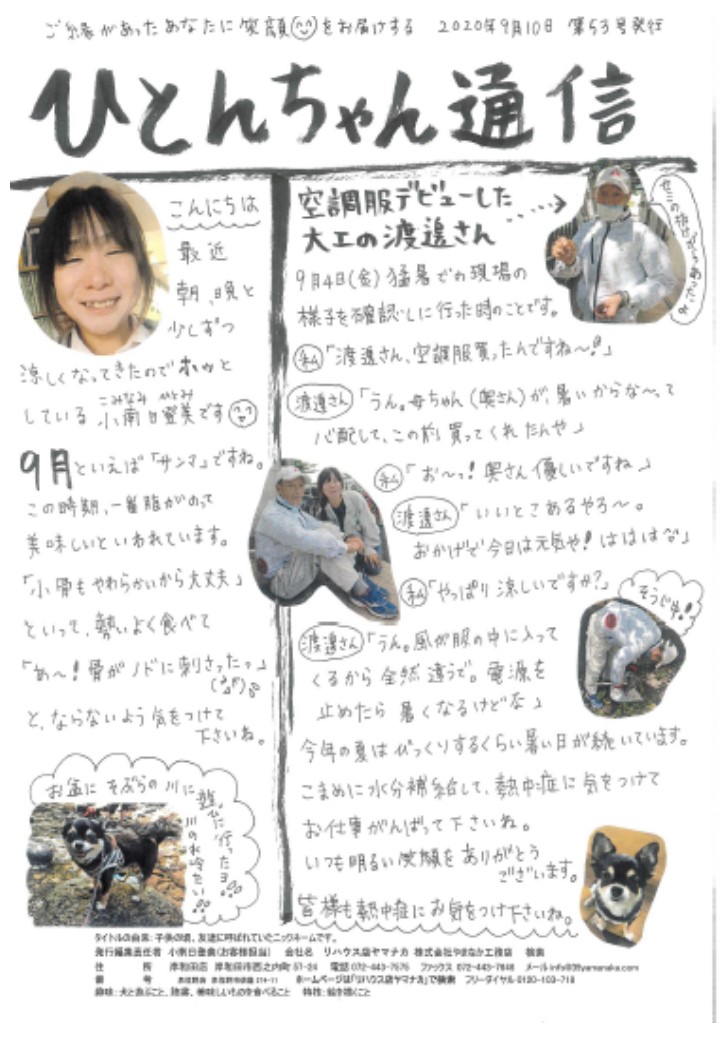 ご縁があったあなたに笑顔をお届けする 2020年9月10日 第53号発行
ひとんちゃん通信
こんにちは
最近
朝、晩と
少しずつ
涼しくなってきたのでホッと
している 小南日登美です
こみなみ ひとみ
9月といえば「サンマ」ですね。
この時期、一番脂がのって
美味しいといわれています。
「小骨もやわらかいから大丈夫」
といって、勢いよく食べて
「あ〜!骨がノドに刺さったっ」
と、ならないよう気をつけて
下さいね。
お盆にそぶらの川に
遊びに行ったヨ!
川の水冷たい
空調服デビューした
大工の渡邉さん
セミの抜けがらあったよ
9月4日(金)猛暑での現場の
様子を確認しに行った時のことです。
私「渡邉さん、空調服買ったんですね〜!」
渡邉さん「うん。母ちゃん(奥さん)が、暑いからな〜って
心配して、この前買ってくれたんや」
私「お〜っ!奥さん優しいですね」
渡邉さん「いいとこあるやろ〜。
おかげで今日は元気や!ははは」
私「やっぱり涼しいですか?」
そうじ中!
渡邉さん「うん。風が服の中に入って
くるから全然違うで。電源を
止めたら暑くなるけどな」
今年の夏はびっくりするくらい暑い日が続いています。
こまめに水分補給して、熱中症に気をつけて
お仕事がんばって下さいね。
いつも明るい笑顔をありがとう
ございます。
皆様も熱中症にお気をつけ下さいね。
タイトルの由来:子供の頃、友達に呼ばれていたニックネームです。
発行編集責任者 小南日登美(お客様担当) 会社名 リハウス店ヤマナカ 株式会社やまなか工務店 検索
住 所 岸和田店 岸和田市西之内町57-24 電話 072-443-7575 ファックス 072-443-7848 メール info@39yamanaka.com
ホームページは「リハウス店ヤマナカ」で検索 フリーダイヤル 0120-103-718
趣味:犬と遊ぶこと、読書、美味しいものを食べること 特技:絵を描くこと